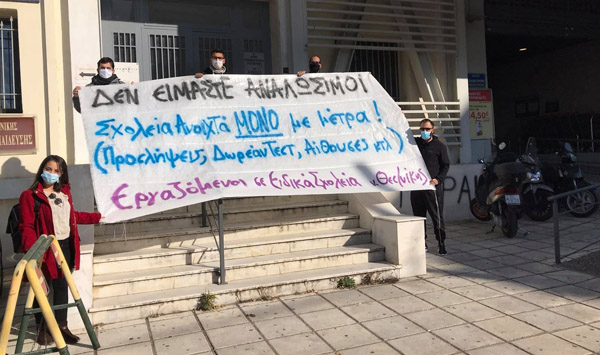 ΔΕΝ ΕΙΜΑΣΤΕ ΑΝΑΛΩΣΙΜΟΙ
Σχολεία Ανοιχτά ΜΟΝΟ με μέτρα!
(Προσλήψεις, Δωρεάν Τεστ, Αίθουσες κτλ)
Εργαζόμενοι σε Ειδικά Σχολεία Θεσ/νίκης
ΝΙΚΗΣ
ΑΙΔΕΥΣΗΣ
4,50